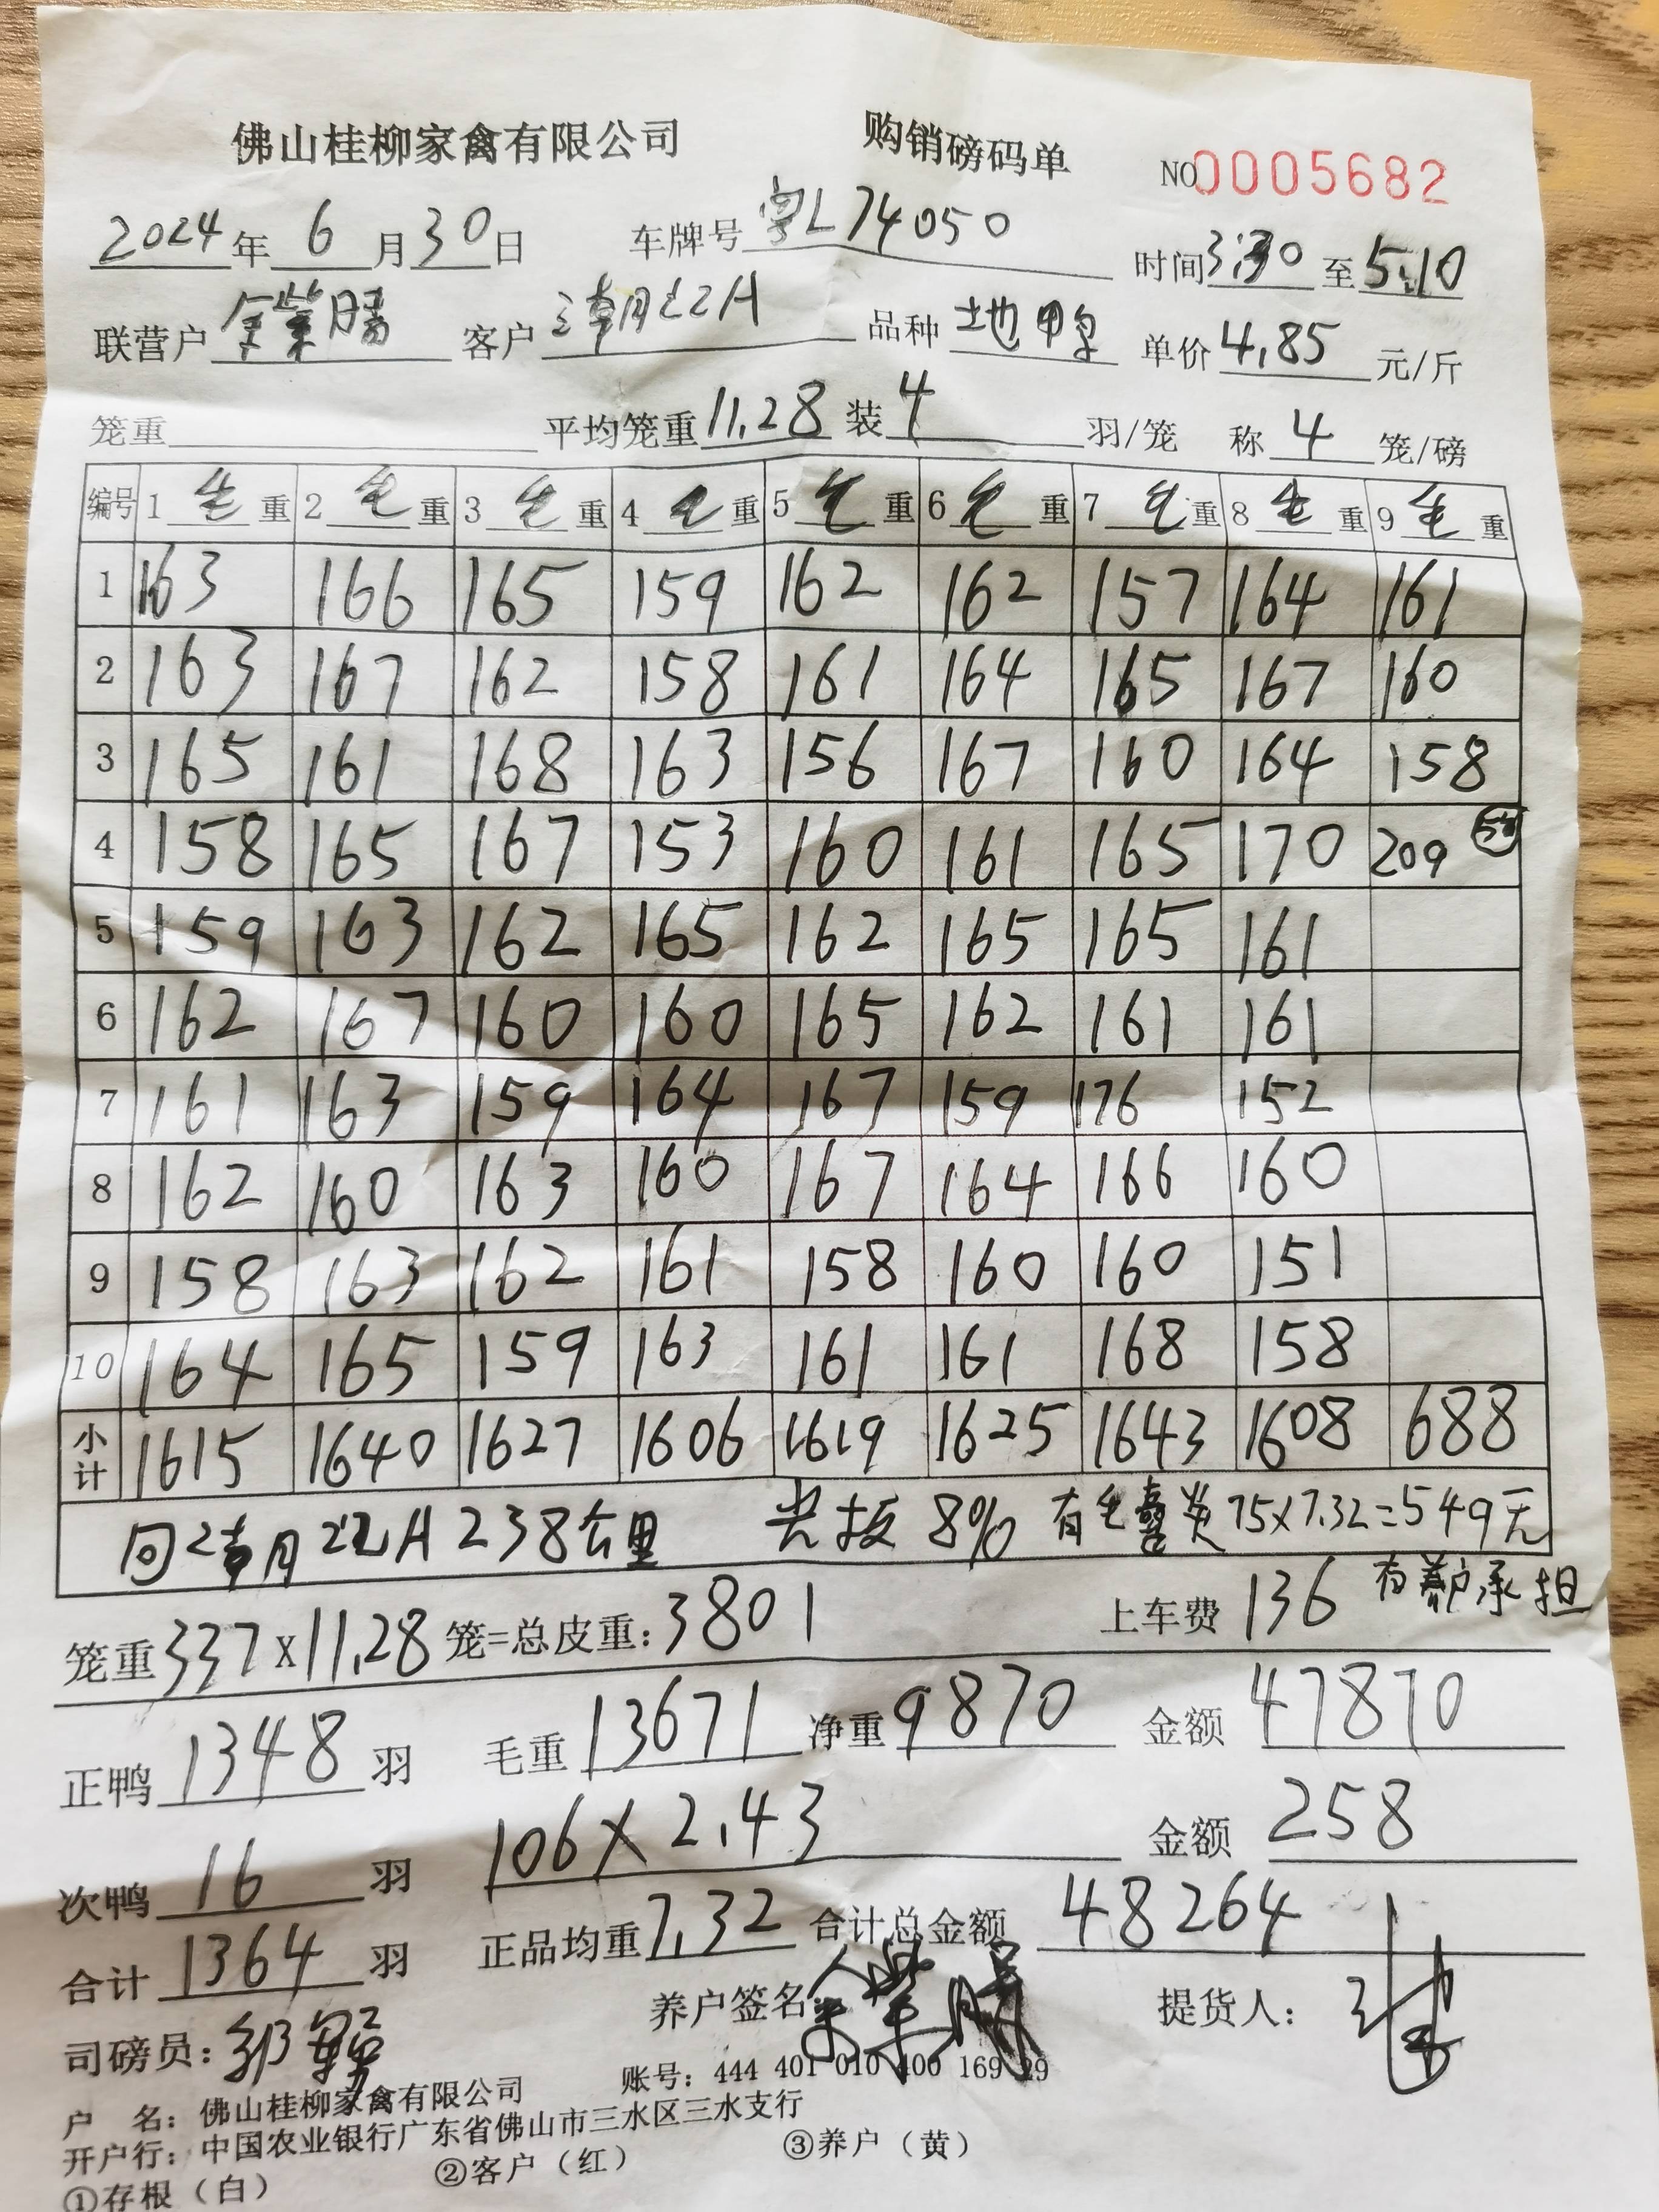 佛山桂柳家禽有限公司 购销磅码单 NO 0005682
2024 年 6 月 30 日 车牌号 粤L74050 时间 3:30 至 5:10
联营户 客户 品种 地鸭 单价 4.85 元/斤
笼重 平均笼重 11.28 装 4 羽/笼 称 4 笼/磅
编号 1 毛 重 2 毛 重 3 毛 重 4 毛 重 5 毛 重 6 毛 重 7 毛 重 8 毛 重 9 毛 重
1 163 166 165 159 162 162 157 164 161
2 163 167 162 158 161 164 165 167 160
3 165 161 168 163 156 167 160 164 158
4 158 165 167 153 160 161 165 170 209
5 159 163 162 165 162 165 165 161
6 162 167 160 160 165 162 161 161
7 161 163 159 164 167 159 176 152
8 162 160 163 160 167 164 166 160
9 158 163 162 161 158 160 160 151
10 164 165 159 163 161 161 168 158
小计 1615 1640 1627 1606 1619 1625 1643 1608 688
回 238公里 8% 有毛 75×7.32=549元
笼重 337 X 11.28 笼=总皮重: 3801 上车费 136 有养户承担
正鸭 1348 羽 毛重 13671 净重 9870 金额 47870
次鸭 16 羽 106×2.43 金额 258
合计 1364 羽 正品均重 7.32 合计总金额 48264
司磅员: 养户签名: 提货人:
户 名: 佛山桂柳家禽有限公司 账号: 444 401 010 400 169 29
开户行: 中国农业银行广东省佛山市三水区三水支行
①存根（白） ②客户（红） ③养户（黄）